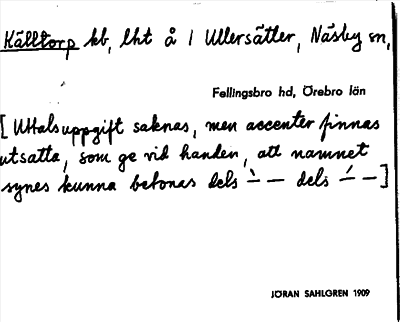 Källtorp kb, lht å 1 Ullersätter, Näsby sn,
Fellingsbro hd, Örebro län
[Uttalsuppgift saknas, men accenter finnas
utsatta, som ge vid handen, att namnet
synes kunna betonas dels ˋ– – dels ˊ– –]
JÖRAN SAHLGREN 1909